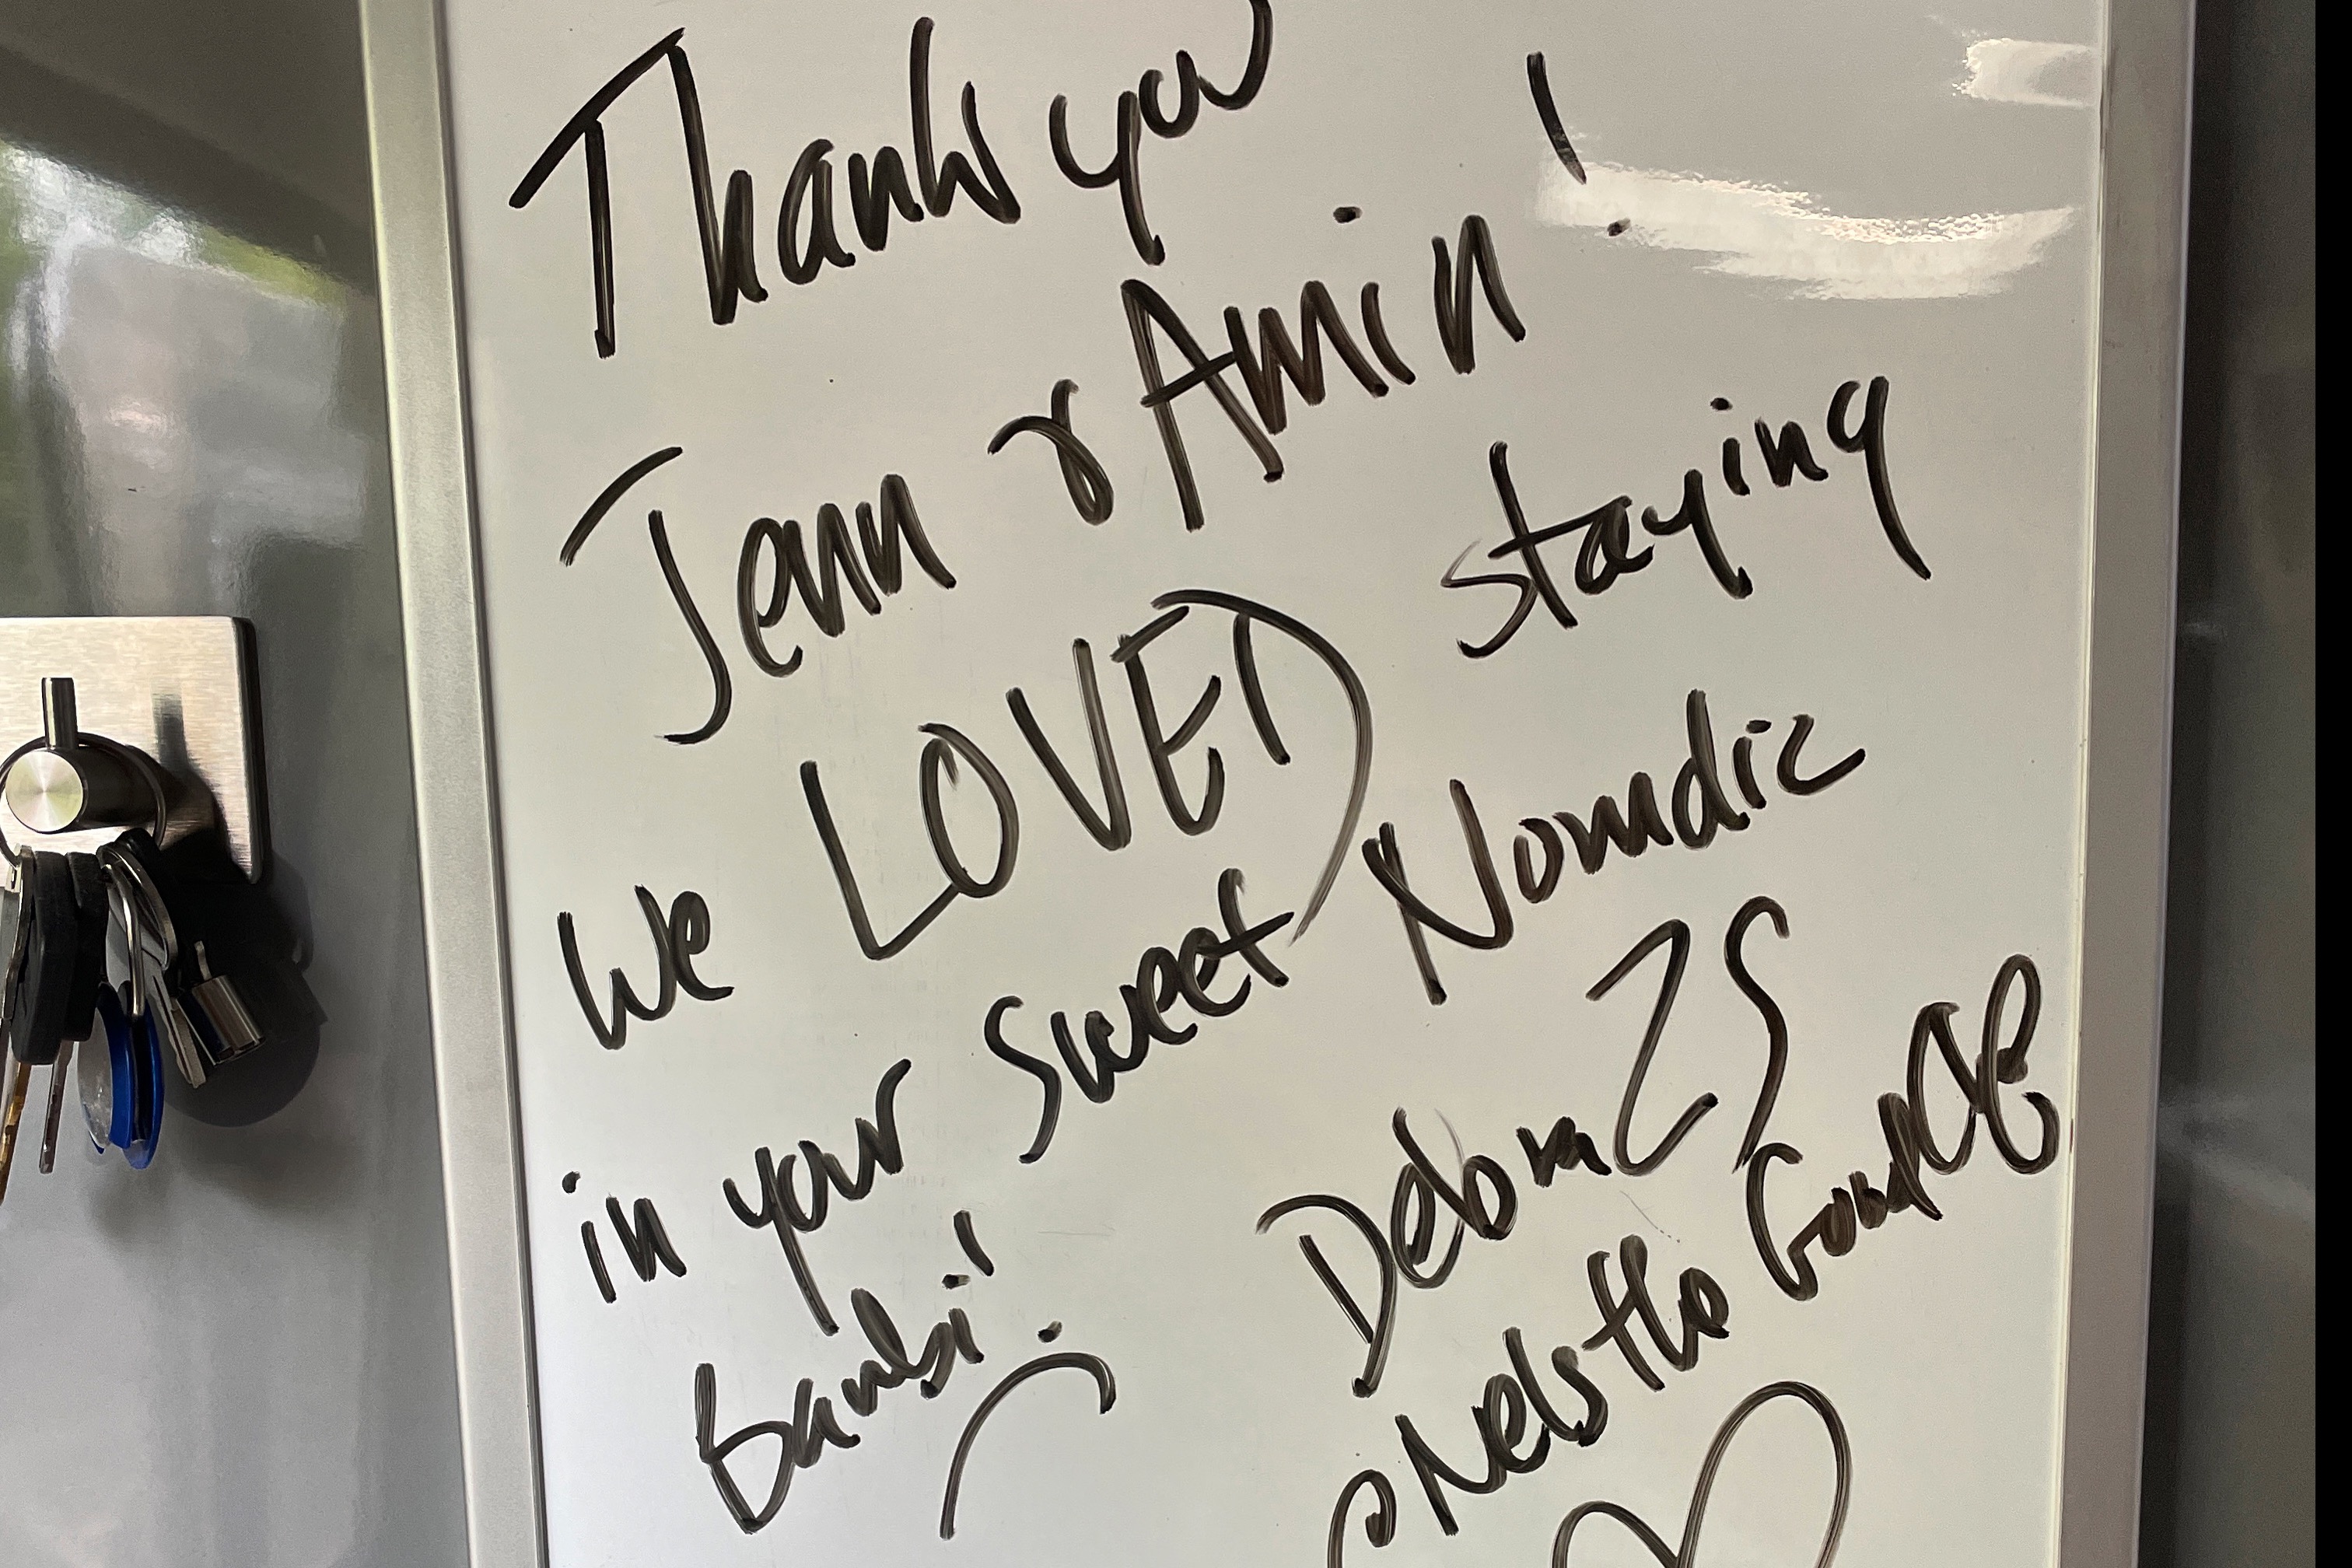 Thank you
Jenn & Amin!
We LOVED staying
in your sweet Nomdic
Bambi!
Debra
@Nelsthe